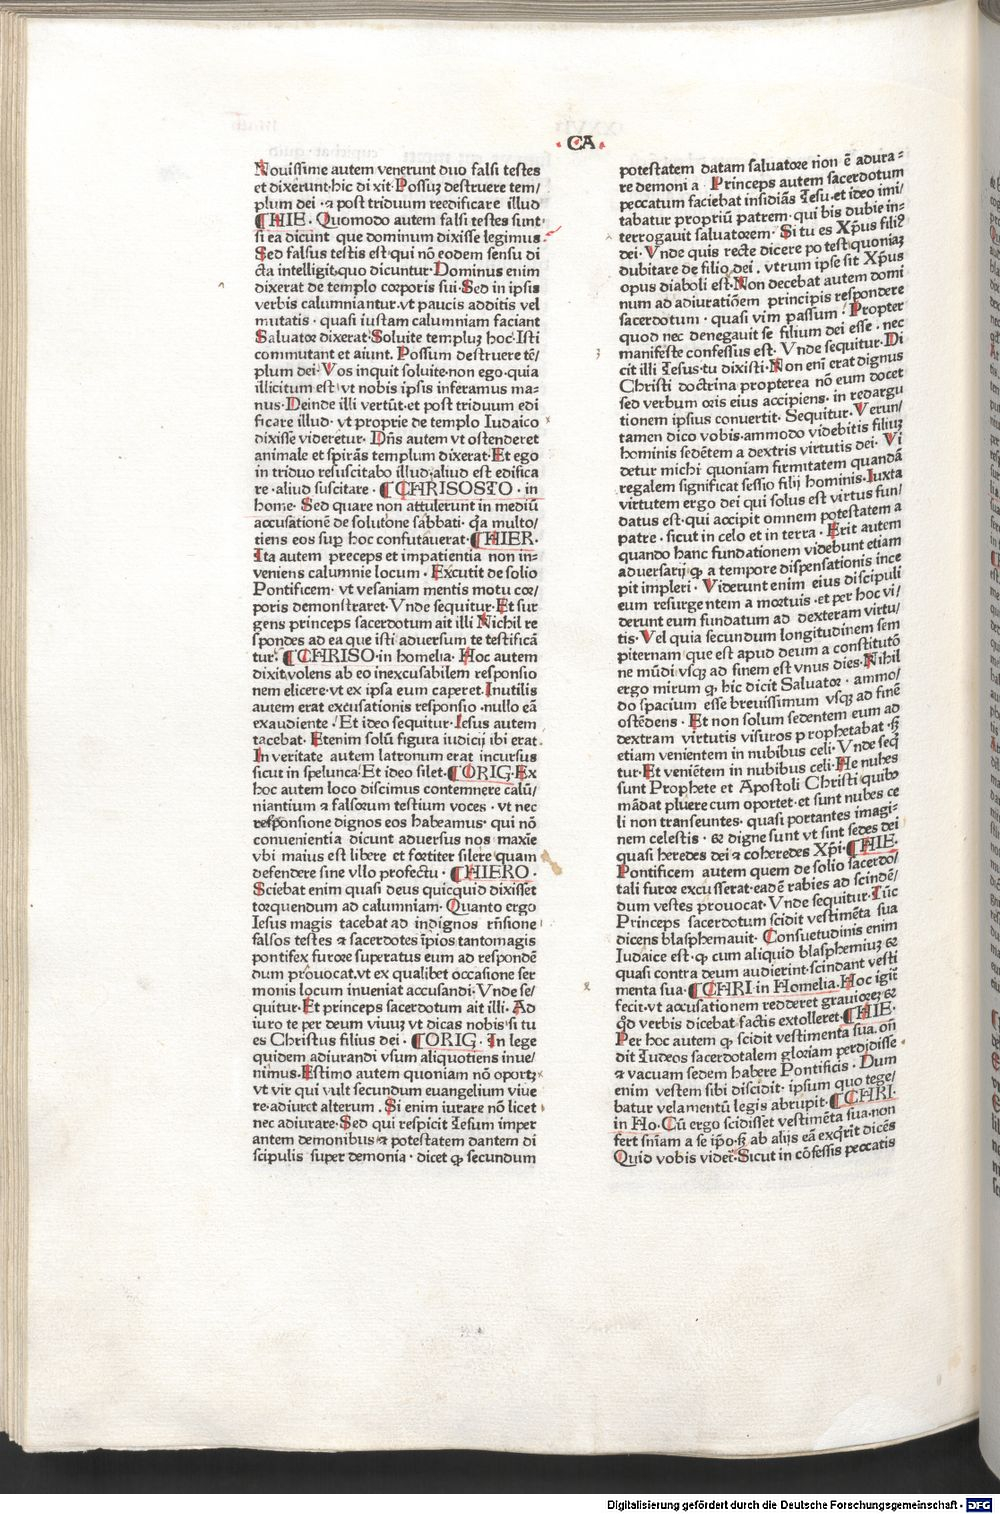 · CA ·
Nouissime autem venerunt duo falsi testes
et dixerunt·hic di xit·Possuʒ destruere tem/
plum dei ·⁊ post triduum reedificare illud
¶HIE · Quomodo autem falsi testes sunt·
si ea dicunt que dominum dixisse legimus·
Sed falsus testis est·qui nō eodem sensu di
cta intelligit·quo dicuntur·Dominus enim
dixerat de templo corporis sui·Sed in ipsis
verbis calumniantur·vt paucis additis vel
mutatis · quasi iustam calumniam faciant
Saluator dixerat·Soluite templuʒ hoc·Isti
commutant et aiunt. Possum destruere tē/
plum dei·Vos inquit soluite·non ego·quia
illicitum est·vt nobis ipsis inferamus ma=
nus·Deinde illi vertūt·et post triduum edi
ficare illud· vt proprie de templo Iudaico
dixisse videretur· Dn̄s autem vt ostenderet
animale et spirās templum dixerat·Et ego
in triduo resuscitabo illud·aliud est edifica
re ·aliud suscitare · ¶CHRISOSTO · in
home· Sed quare non attulerunt in mediū
accusationē de solutōne sabbati· q̄a multo/
tiens eos sup̄ hoc confutauerat·¶HIER·
Ita autem preceps et impatientia non in=
veniens calumnie locum · Excutit de solio
Pontificem· vt vesaniam mentis motu cor/
poris demonstraret·Vnde sequitur·Et sur
gens princeps sacerdotum ait illi Nichil re
spondes ad ea que isti aduersum te testificā
tur· ¶CHRISO·in homelia· Hoc autem
dixit·volens ab eo inexcusabilem responsio
nem elicere·vt ex ipsa eum caperet·Inutilis
autem erat excusationis responsio ·nullo eā
exaudiente ·Et ideo sequitur·Iesus autem
tacebat· Etenim solū figura iudicij ibi erat·
In veritate autem latronum erat incursus
sicut in spelunca·Et ideo silet·¶ORIG·Ex
hoc autem loco discimus contemnere calū/
niantium ⁊ falsorum testium voces · vt nec
responsione dignos eos habeamus· qui nō
conuenientia dicunt aduersus nos· maxie
vbi maius est libere et fortiter silere quam
defendere sine vllo profectu · ¶HIERO ·
Sciebat enim quasi deus quicquid dixisset
torquendum ad calumniam· Quanto ergo
Iesus magis tacebat ad indignos rn̄sione
falsos testes ⁊ sacerdotes īpios·tantomagis
pontifex furore superatus eum ad respondē
dum prouocat·vt ex qualibet occasione ser
monis locum inueniat accusandi·Vnde se/
quitur·Et princeps sacerdotum ait illi· Ad
iuro te per deum viuuʒ vt dicas nobis·si tu
es Christus filius dei · ¶ORIG· In lege
quidem adiurandi vsum aliquotiens inue/
nimus·Estimo autem quoniam nō oportʒ
vt vir qui vult secundum euangelium viue
re·adiuret alterum . Si enim iurare nō licet
nec adiurare·Sed qui respicit Iesum imper
antem demonibus·⁊ potestatem dantem di
scipulis super demonia · dicet ꝙ secundum
potestatem datam saluatore non ē adiura=
re demoni a · Princeps autem sacerdotum
peccatum faciebat insidiās Iesu·et ideo imi/
tabatur propriū patrem·qui bis dubie in=
terrogauit saluatorem· Si tu es Xp̄us filiꝰ
dei· Vnde quis recte dicere po test·quoniaʒ
dubitare de filio dei · vtrum ipse sit Xp̄us
opus diaboli est·Non decebat autem domi
num ad adiuratiōem principis respondere
sacerdotum · quasi vim passum · Propter
quod nec denegauit se filium dei esse · nec
manifeste confessus est· Vnde sequitur·Di
cit illi Iesus·tu dixisti·Non enī erat dignus
Christi doctrina·propterea nō eum docet
sed verbum oris eius accipiens· in redargu
tionem ipsius conuertit· Sequitur·Verun/
tamen dico vobis·ammodo videbitis filiuʒ
hominis sedētem a dextris virtutis dei· Vi
detur michi quoniam firmitatem quandā
regalem significat sessio filij hominis·Iuxta
virtutem ergo dei qui solus est virtus fun/
datus est·qui accipit omnem potestatem a
patre · sicut in celo et in terra · Erit autem
quando hanc fundationem videbunt etiam
aduersarij ꝙ a tempore dispensationis ince
pit impleri · Viderunt enim eius discipuli
eum resurgentem a mortuis ·et per hoc vi/
derunt eum fundatum ad dexteram virtu/
tis· Vel quia secundum longitudinem sem
piternam que est apud deum a constitutō
ne mūdi vsqʒ ad finem est vnus dies·Nihil
ergo mirum ꝙ hic dicit Saluator · ammo/
do spacium esse breuissimum vsqʒ ad finē
ostēdens · Et non solum sedentem eum ad
dextram virtutis visuros prophetabat ·sʒ
etiam venientem in nubibus celi· Vnde seq̄
tur·Et veniētem in nubibus celi·He nubes
sunt Prophete et Apostoli Christi quibꝰ
mādat pluere cum oportet·et sunt nubes ce
li non transeuntes· quasi portantes imagi=
nem celestis · & digne sunt vt sint sedes dei
quasi heredes dei ⁊ coheredes Xp̄i·¶HIE·
Pontificem autem quem de solio sacerdo/
tali furor excusserat·eadē rabies ad scindē/
dum vestes prouocat· Vnde sequitur·Tūc
Princeps sacerdotum scidit vestimēta sua
dicens blasphemauit· Consuetudinis enim
Iudaice est·ꝙ cum aliquid blasphemiuʒ &
quasi contra deum audierint·scindant vesti
menta sua·¶CHRI·in Homelia·Hoc igit̄
fecit·vt accusationem redderet grauiorēʒ &
q̄d verbis dicebat factis extolleret·¶HIE·
Per hoc autem ꝙ scidit vestimenta sua·on̄
dit Iudeos sacerdotalem gloriam perdidisse ·
⁊ vacuam sedem habere Pontificis · Dum
enim vestem sibi discidit· ipsum quo tege/
batur velamentū legis abrupit·¶CHRI·
in Ho· Cū ergo scidisset vestimēta sua·non
fert sn̄iam a se ip̄o·sʒ ab alijs eā exq̄rit dicēs
Quid vobis videt̄·Sicut in cōfessis peccatis
Digitalisierung gefördert durch die Deutsche Forschungsgemeinschaft - DFG